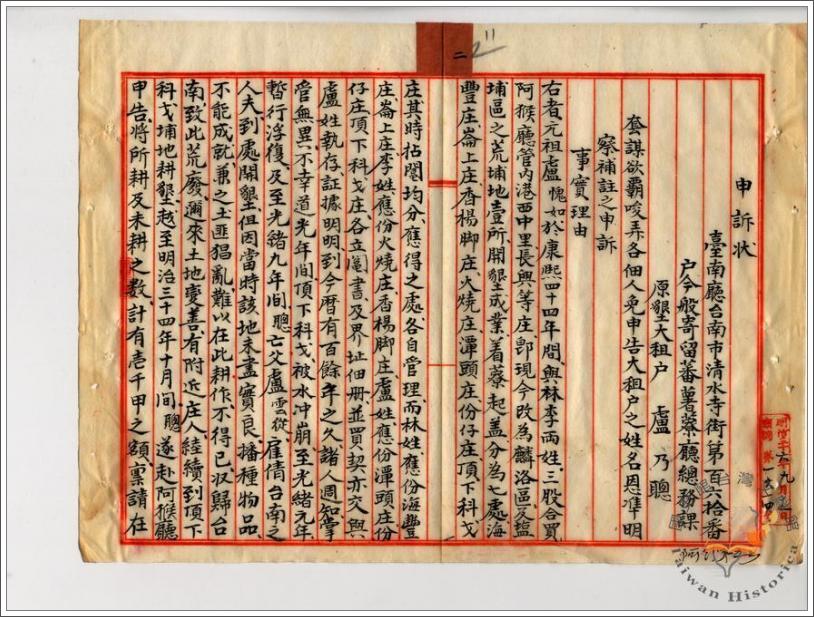 申訴状
臺南廳台南市清水寺街第百六拾番
户今般寄留蕃薯藔廳總務課
原墾大租户 盧乃聰
套謀欲覇唆弄各佃人免申告大租户之姓名恩準明
察補註之申訴
事實理由
右者元祖盧愧如於康熙四十四年間與林李両姓三股合買
阿猴廳管內港西中里長興等庄卽現今改為麟洛區及塩
埔區之荒埔地壹所開墾成業着藔起盖分為七處海
豐庄崙上庄香楊脚庄火燒庄潭頭庄份仔庄頂下科戈
庄其時拈鬮均分應得之處各自管理而林姓應份海豐
庄崙上庄李姓應份火燒庄香楊脚庄盧姓應份潭頭庄份
仔庄頂下科戈庄各立鬮書及界址佃册並買契亦交與
盧姓執存証據明明到今曆有百餘年之久諸人週知掌
管無異不幸道光年間頂下科戈被水冲崩至光緒元年
暫行浮復及至光緒九年間聰亡父盧雲從雇倩台南之
人夫到處開墾但因當時該地未盡實良播種物品
不能成就兼之土匪猖亂難以在此耕作不得已收歸台
南致此荒廢邇來土地變善有附近庄人經續到頂下
科戈埔地耕墾越至明治三十四年十月間聰遂赴阿猴廳
申告將所耕及未耕之數計有壹千甲之額稟請在
二
11
Taiwan Historica